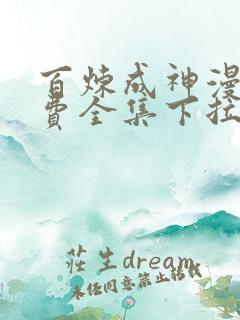 百炼成神漫
费全集下拉
莊生dream
未经同意禁止转载